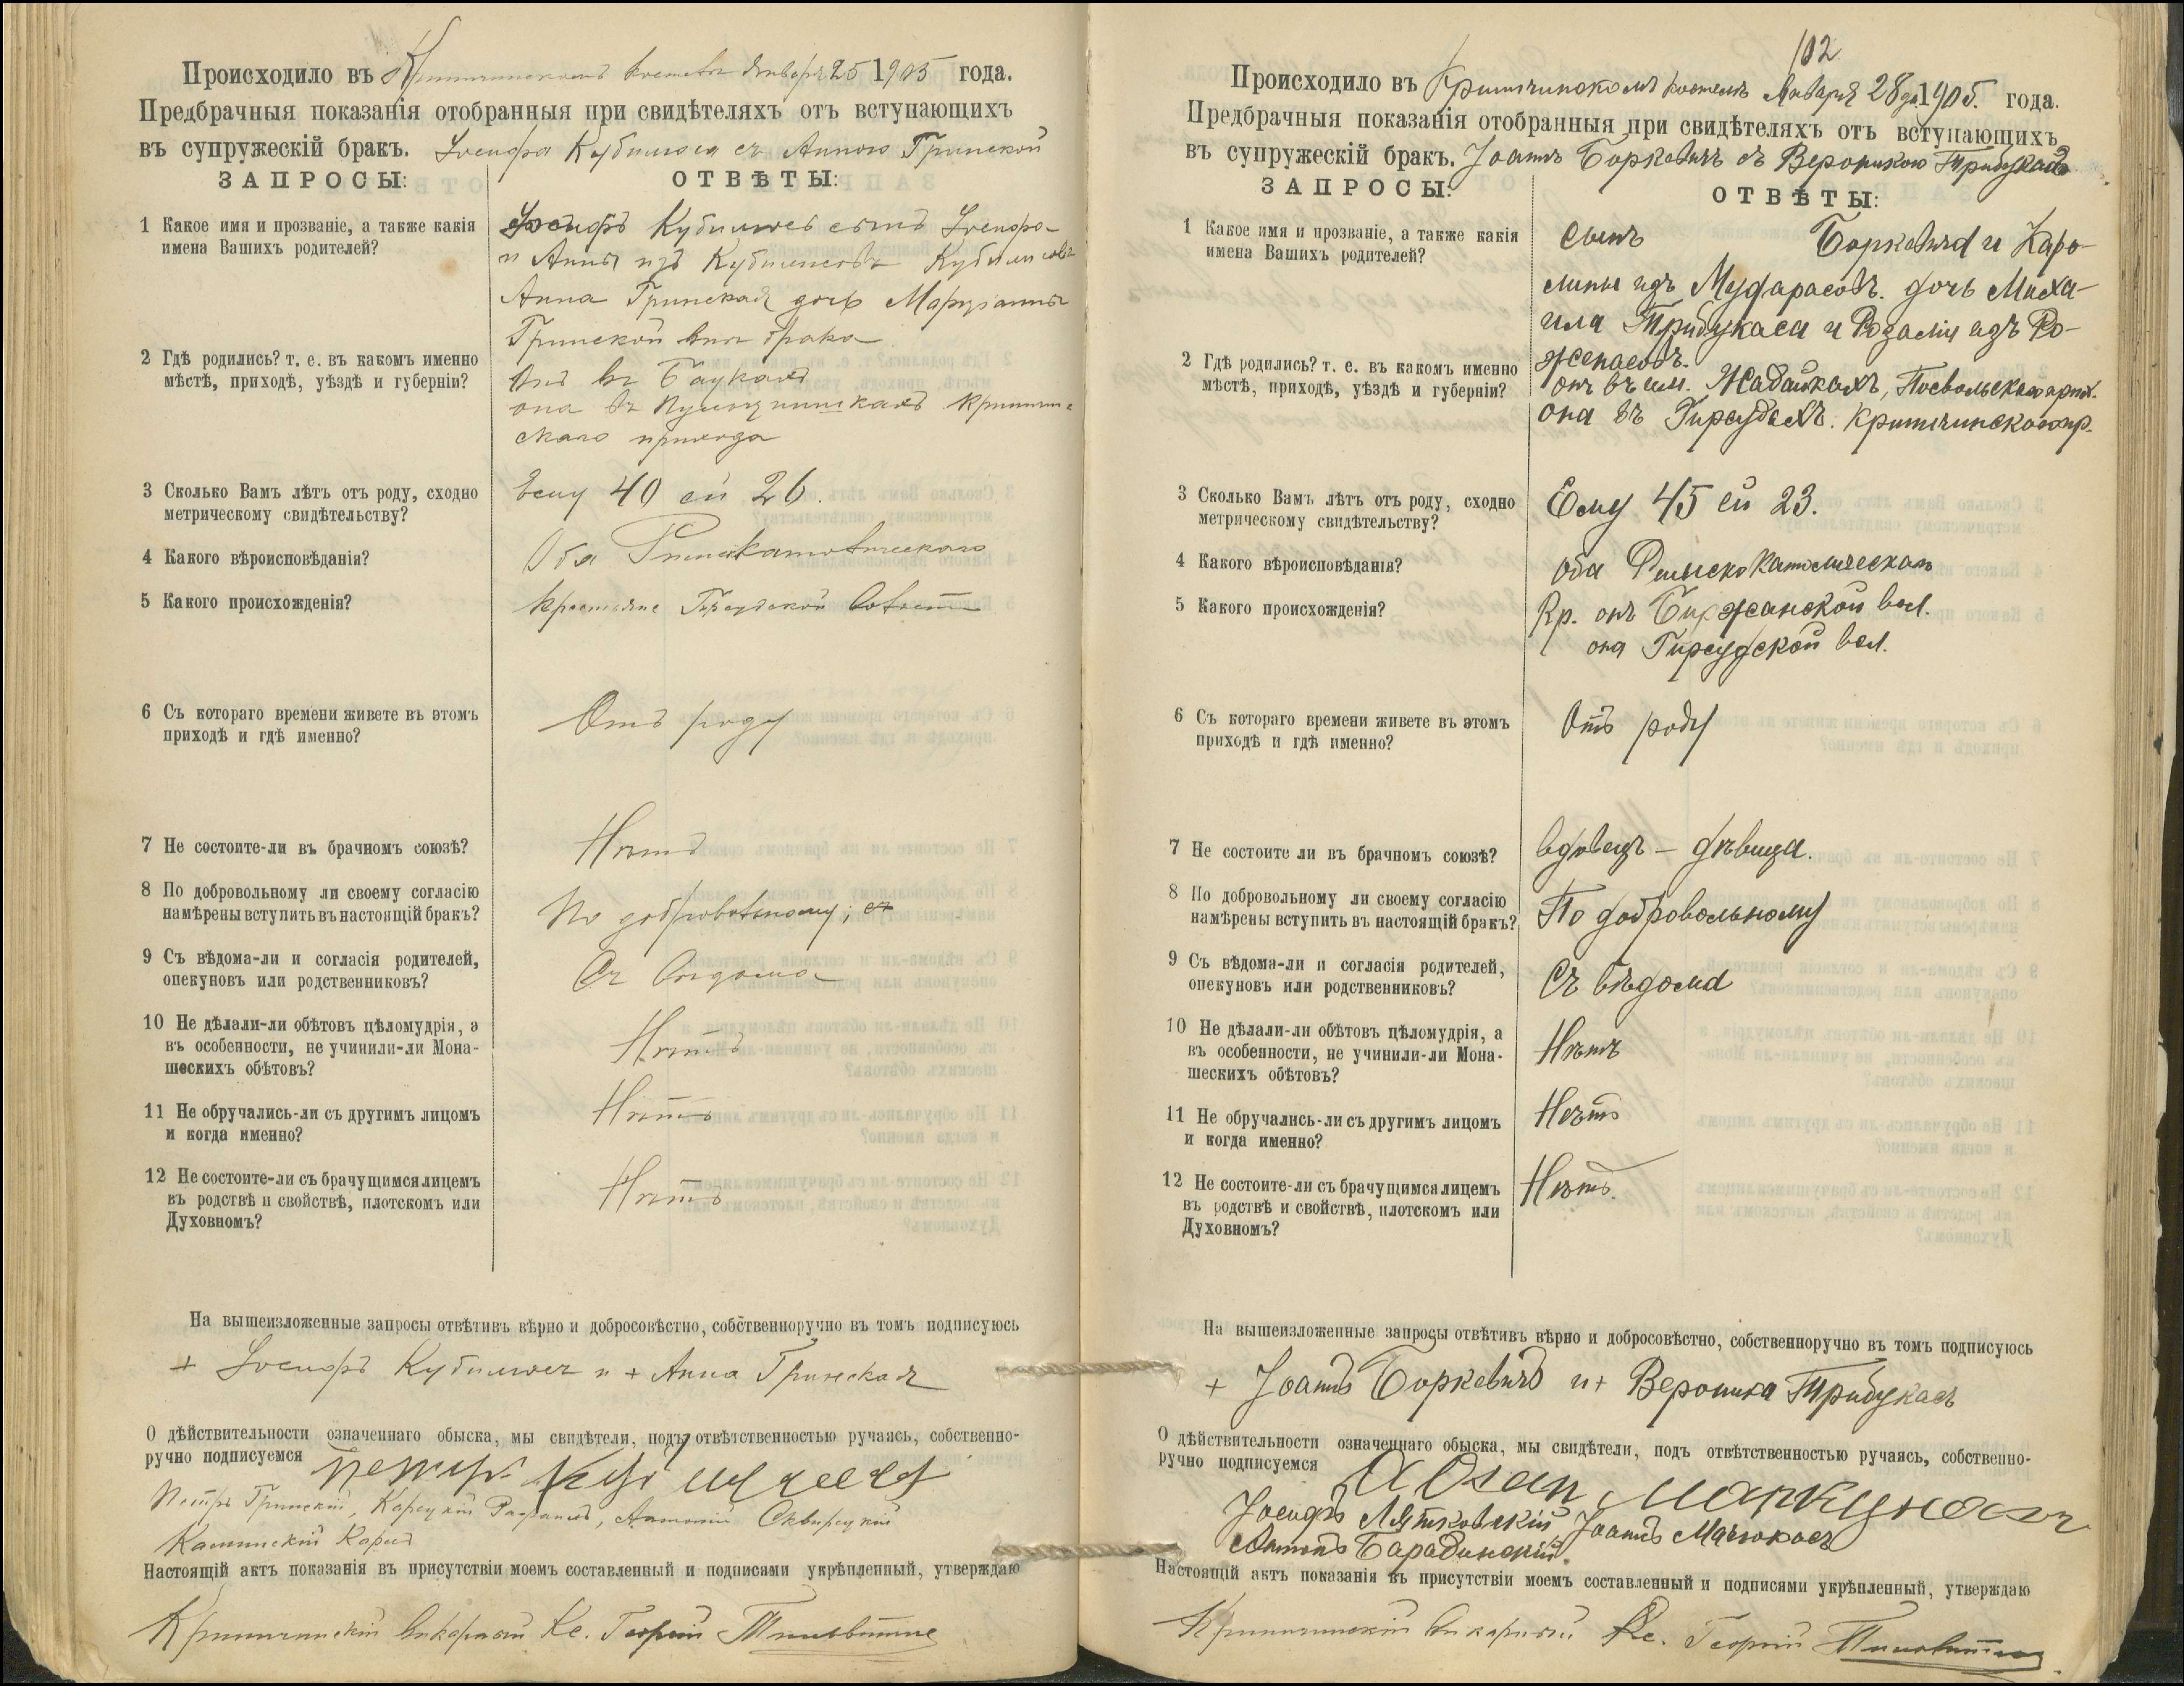 Происходило въ Криничинскомъ костелѣ Января 25 1905 года.
Предбрачныя показанія отобранныя при свидѣтеляхъ отъ вступающихъ
въ супружескій бракъ. Іосифа съ Анною Гринской
ЗАПРОСЫ: ОТВѢТЫ:
1 Какое имя и прозваніе, а также какія
имена Вашихъ родителей?
Іосифъ сынъ Іосифа
и Анны изъ
Анна Гринская дочь Маріанны
Гринской внѣ брака
2 Гдѣ родились? т. е. въ какомъ именно
мѣстѣ, приходѣ, уѣздѣ и губерніи?
Онъ въ
она въ
скаго прихода
3 Сколько Вамъ лѣтъ отъ роду, сходно
метрическому свидѣтельству?
Ему 40 ей 26.
4 Какого вѣроисповѣданія?
Оба Римскатолическаго
5 Какого происхожденія?
Крестьяне Гирсудской Волости
6 Съ котораго времени живете въ этомъ
приходѣ и гдѣ именно?
Отъ роду
7 Не состоите-ли въ брачномъ союзѣ?
Нѣтъ
8 По добровольному ли своему согласію
намѣрены вступить въ настоящій бракъ?
По добровольному;
9 Съ вѣдома-ли и согласія родителей,
опекуновъ или родственниковъ?
Съ вѣдома
10 Не дѣлали-ли обѣтовъ цѣломудрія, а
въ особенности, не учинили-ли Мона-
шескихъ обѣтовъ?
Нѣтъ
11 Не обручались-ли съ другимъ лицомъ
и когда именно?
Нѣтъ
12 Не состоите-ли съ брачущимся лицемъ
въ родствѣ и свойствѣ, плотскомъ или
Духовномъ?
Нѣтъ
На вышеизложенные запросы отвѣтивъ вѣрно и добросовѣстно, собственноручно въ томъ подписуюсь
+ Іосифъ и + Анна Гринская
О дѣйствительности означеннаго обыска, мы свидѣтели, подъ отвѣтственностью ручаясь, собственно-
ручно подписуемся
Петръ Гринскій, Антоній Сквирецкій
Каминскій
Настоящій актъ показанія въ присутствіи моемъ составленный и подписями укрѣпленный, утверждаю
Криничинскій Викарный Кс. Георгій
102
Происходило въ Криничинскомъ костелѣ Января 28 дня 1905. года.
Предбрачныя показанія отобранныя при свидѣтеляхъ отъ вступающихъ
въ супружескій бракъ. Іоаннъ Боркевичъ съ Вероникою Трибукасъ
ЗАПРОСЫ: ОТВѢТЫ:
1 Какое имя и прозваніе, а также какія
имена Вашихъ родителей?
Сынъ Боркевича и Каро-
лины изъ дочь Миха-
ила Трибукаса и Розаліи изъ Ро-
2 Гдѣ родились? т. е. въ какомъ именно
мѣстѣ, приходѣ, уѣздѣ и губерніи?
онъ въ им. Посвольскаго прих.
она въ Гирсудѣхъ. Криничинскаго пр.
3 Сколько Вамъ лѣтъ отъ роду, сходно
метрическому свидѣтельству?
Ему 45 ей 23.
4 Какого вѣроисповѣданія?
Оба Римскокатолическаго
5 Какого происхожденія?
Кр. онъ Биржанской вол.
она Гирсудской вол.
6 Съ котораго времени живете въ этомъ
приходѣ и гдѣ именно?
Отъ роду
7 Не состоите ли въ брачномъ союзѣ?
вдовецъ – дѣвица.
8 По добровольному ли своему согласію
намѣрены вступить въ настоящій бракъ?
По добровольному
9 Съ вѣдома-ли и согласія родителей,
опекуновъ или родственниковъ?
Съ вѣдома
10 Не дѣлали-ли обѣтовъ цѣломудрія, а
въ особенности, не учинили-ли Мона-
шескихъ обѣтовъ?
Нѣтъ
11 Не обручались-ли съ другимъ лицомъ
и когда именно?
Нѣтъ
12 Не состоите-ли съ брачущимся лицемъ
въ родствѣ и свойствѣ, плотскомъ или
Духовномъ?
Нѣтъ.
На вышеизложенные запросы отвѣтивъ вѣрно и добросовѣстно, собственноручно въ томъ подписуюсь
+ Іоаннъ Боркевичъ и + Вероника Трибукасъ
О дѣйствительности означеннаго обыска, мы свидѣтели, подъ отвѣтственностью ручаясь, собственно-
ручно подписуемся
Іосифъ Іоаннъ Мачюкасъ
Антонъ Барадинскій.
Настоящій актъ показанія въ присутствіи моемъ составленный и подписями укрѣпленный, утверждаю
Криничинскій Викарный Кс. Георгій